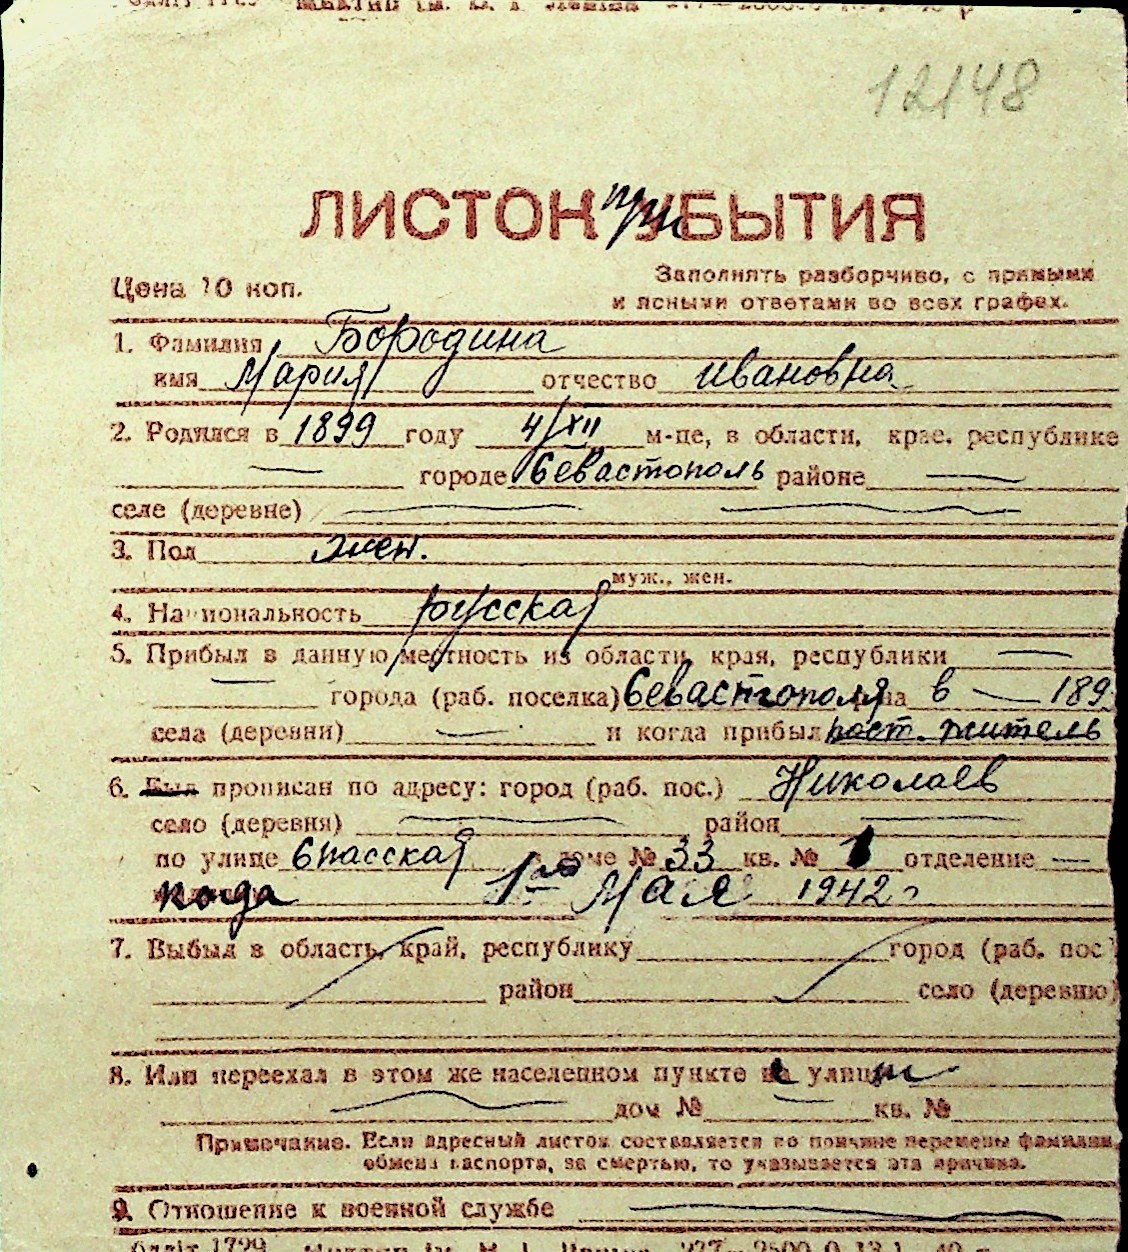 12148
ЛИСТОК при УБЫТИЯ
Цена 10 коп.
Заполнять разборчиво, с прямыми
и ясными ответами во всех графах.
1. Фамилия Бородина
имя Мария отчество Ивановна
2. Родился в 1899 году 4/XII м-це, в области, крае, республике
— городе Севастополь районе —
селе (деревне) — —
3. Пол жен.
муж., жен.
4. Национальность русская
5. Прибыл в данную местность из области, края, республики —
— города (раб. поселка) Севастополя в — 189
села (деревни) — и когда прибыл пост. житель
6. Был прописан по адресу: город (раб. пос.) Николаев
село (деревня) — район —
по улице Спасская в доме № 33 кв. № 1 отделение —
когда 1го Мая 1942 г
7. Выбыл в область, край, республику город (раб. пос.)
район село (деревню)
8. Или переехал в этом же населенном пункте улицы
— дом № — кв. №
Примечание. Если адресный листок составляется по причине перемены фамилии,
обмена паспорта, за смертью, то указывается эта причина.
9. Отношение к военной службе —